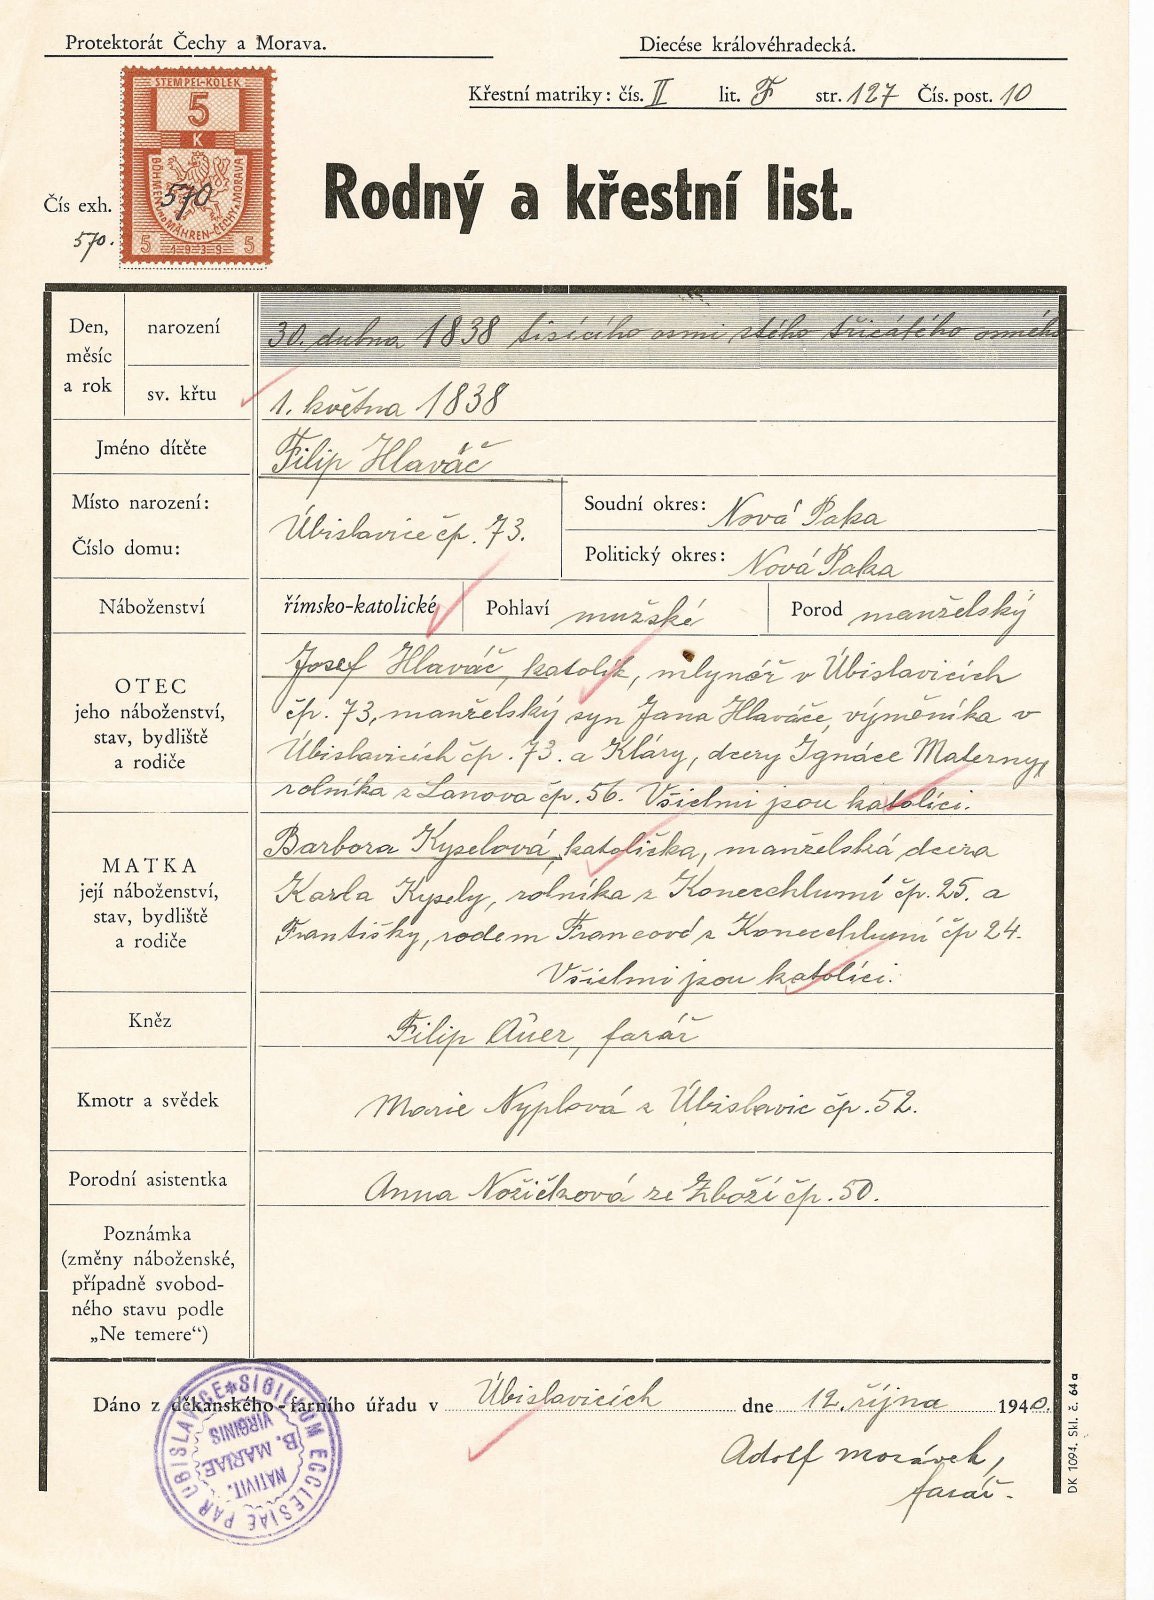 Protektorát Čechy a Morava.
Diecése královéhradecká.
Křestní matriky: čís. II lit. F str. 127 Čís. post. 10
STEMPEL-KOLEK
5
K
BÖHMEN UND MÄHREN-ČECHY A MORAVA
570
5 1939 5
Čís exh.
570.
Rodný a křestní list.
Den, měsíc a rok
narození
30. dubna 1838 tisícího osmi stého třicátého osmého
sv. křtu
1. května 1838
Jméno dítěte
Filip Hlaváč
Místo narození:
Číslo domu:
Úbislavice čp. 73.
Soudní okres: Nová Paka
Politický okres: Nová Paka
Náboženství
římsko-katolické
Pohlaví mužské
Porod manželský
OTEC
jeho náboženství,
stav, bydliště
a rodiče
Josef Hlaváč, katolík, mlynář v Úbislavicích
čp. 73, manželský syn Jana Hlaváče, výměníka v
Úbislavicích čp. 73. a Kláry, dcery Ignáce Materny,
rolníka z Lanova čp. 56. Všichni jsou katolíci.
MATKA
její náboženství,
stav, bydliště
a rodiče
Barbora Kyselová, katolička, manželská dcera
Karla Kysely, rolníka z Konecchlumí čp. 25. a
Františky, rodem Francové z Konecchlumí čp 24.
Všichni jsou katolíci.
Kněz
Filip Auer, farář
Kmotr a svědek
Marie Nyplová z Úbislavic čp. 52.
Porodní asistentka
Anna Nožičková ze Zboží čp. 50.
Poznámka
(změny náboženské,
případně svobod-
ného stavu podle
„Ne temere“)
Dáno z děkanského-farního úřadu v Úbislavicích dne 12. října 1940.
Adolf Morávek,
farář.
SIGILLUM ECCLESIAE PAR UBISLAVICE
NATIVIT.
B. MARIAE
VIRGINIS
DK 1094. Skl. č. 64a